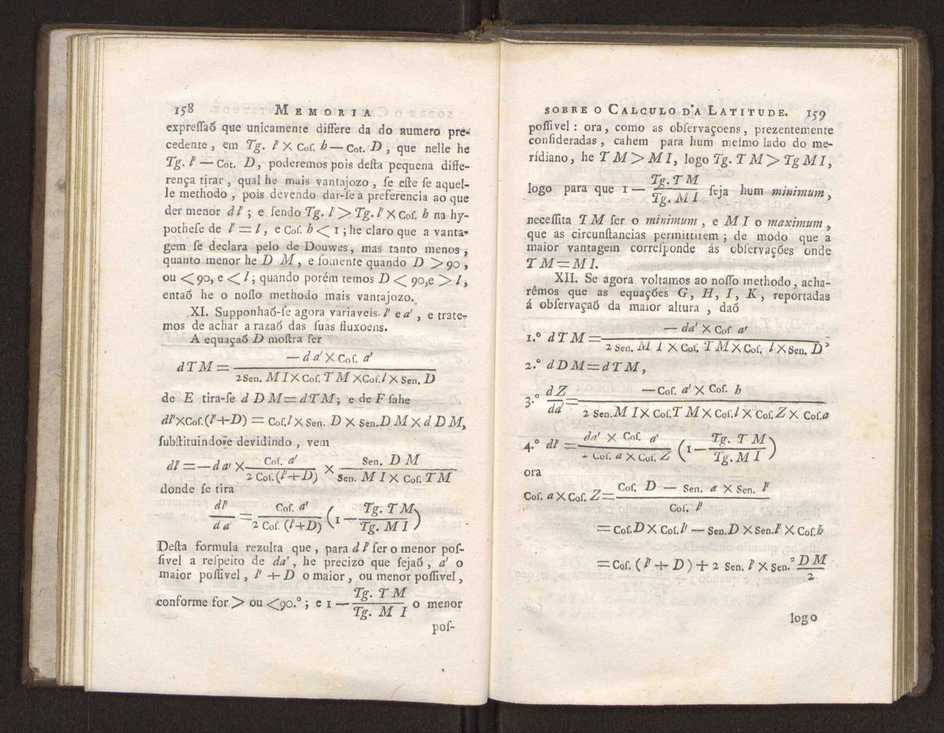 158 MEMORIA
expreſſaõ que unicamente differe da do numero pre-
cedente, em Tg. l' X Coſ. h — Cot. D, que nelle he
Tg. l' — Cot. D, poderemos pois deſta pequena diffe-
rença tirar, qual he mais vantajozo, ſe eſte ſe aquel-
le methodo, pois devendo dar-ſe a preferencia ao que
der menor dl'; e ſendo Tg. l > Tg. l' X Coſ. h na hy-
potheſe de l' = l, e Coſ. h < 1; he claro que a vanta-
gem ſe declara pelo de Douwes, mas tanto menos,
quanto menor he D M, e ſomente quando D > 90,
ou < 90, e < l; quando porém temos D < 90, e > l,
entaõ he o noſſo methodo mais vantajozo.
XI. Supponhaõ-ſe agora variaveis l' e a', e trate-
mos de achar a razaõ das ſuas fluxoens.
A equaçaõ D moſtra ſer
dTM = — da' X Coſ. a' / 2 Sen. M I X Coſ. T M X Coſ. l X Sen. D
de E tira-ſe d D M = dTM; e de F ſahe
dl' X Coſ. (l' + D) = Coſ. l X Sen. D X Sen. D M X d D M,
ſubſtituindo e devidindo, vem
dl' = — da' X Coſ. a' / 2 Coſ. (l' + D) X Sen. D M / Sen. M I X Coſ. T M
donde ſe tira
dl' / da' = Coſ. a' / 2 Coſ. (l' + D) (1 — Tg. T M / Tg. M I)
Deſta formula rezulta que, para dl' ſer o menor poſ-
ſivel a reſpeito de da', he precizo que ſejaõ, a' o
maior poſſivel, l' + D o maior, ou menor poſſivel,
conforme for > ou < 90.°; e 1 — Tg. T M / Tg. M I o menor
poſ-
SOBRE O CALCULO D'A LATITUDE. 159
poſſivel: ora, como as obſervaçoens, prezentemente
conſideradas, cahem para hum meſmo lado do me-
ridiano, he T M > M I, logo Tg. T M > Tg M I,
logo para que 1 — Tg. T M / Tg. M I ſeja hum minimum,
neceſſita T M ſer o minimum, e M I o maximum,
que as circunſtancias permittirem; de modo que a
maior vantagem correſponde ás obſervações onde
T M = M I.
XII. Se agora voltamos ao noſſo methodo, acha-
rêmos que as equações G, H, I, K, reportadas
á obſervaçaõ da maior altura, daõ
1.° d T M = — da' X Coſ. a' / 2 Sen. M I X Coſ. T M X Coſ. l X Sen. D,
2.° d D M = d T M,
3.° d Z / da' = — Coſ. a' X Coſ. h / 2 Sen. M I X Coſ. T M X Coſ. l X Coſ. Z X Coſ. a
4.° dl' = da' X Coſ. a' / 2 Coſ. a X Coſ. Z (1 — Tg. T M / Tg. M I)
ora
Coſ. a X Coſ. Z = Coſ. D — Sen. a X Sen. l' / Coſ. l'
= Coſ. D X Coſ. l' — Sen. D X Sen. l' X Coſ. h
= Coſ. (l' + D) + 2 Sen. l' X Sen.² D M / 2
logo